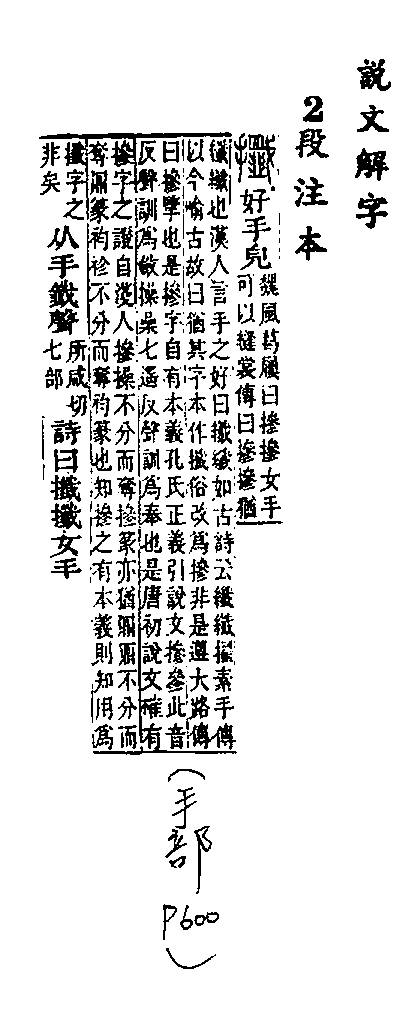 説文解字
2段注本
攕 好手皃
魏風葛屨曰摻摻女手
可以縫裳傳曰摻摻猶
纖纖也漢人言手之好曰纖纖如古詩云纖纖擢素手傳
以今喻古故曰猶其字本作攕俗改爲摻非是遵大路傳
曰摻擥也是摻字自有本義孔氏正義引說文摻參此音
反聲訓爲斂操喿七遥反聲訓爲奉也是唐初說文確有
摻字之證自漢人摻操不分而奪摻篆亦猶鼏鼏不分而
奪鼏篆袀袗不分而奪袀篆也知摻之有本義則知用爲
攕字之
非矣
从手韱聲
所咸切
七部
詩曰攕攕女手
(手部
P600)